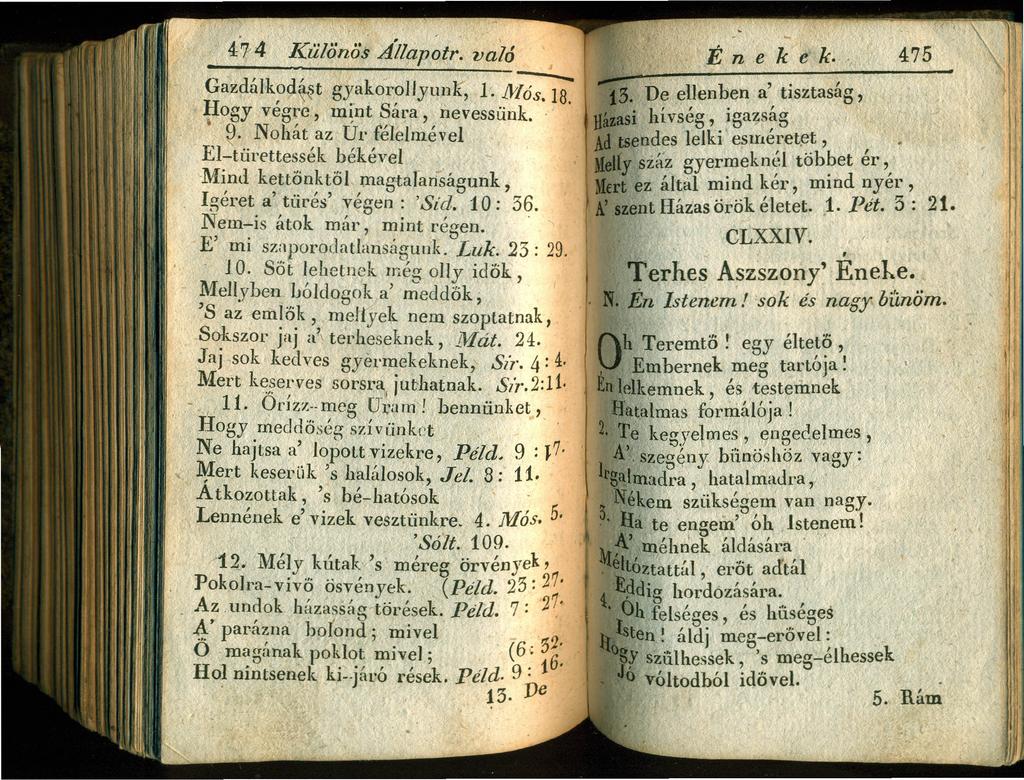 474 Különös Állapotr. való
Gazdálkodást gyakorollyunk, 1. Mós. 18.
Hogy végre, mint Sára, nevessünk.
9. Nohát az Ur félelmével
El-türettessék békével
Mind kettönktöl magtalanságunk,
Igéret a' türés' végen : 'Sid. 10 : 36.
Nem-is átok már, mint régen.
E' mi szaporodatlanságunk. Luk. 23 : 29.
10. Söt lehetnek még olly idök,
Mellyben bóldogok a' meddök,
'S az emlök, mellyek nem szoptatnak,
Sokszor jaj a' terheseknek, Mát. 24.
Jaj sok kedves gyermekeknek, Sir. 4 : 4.
Mert keserves sorsra juthatnak. Sir. 2:11.
11. Örízz-meg Uram! bennünket,
Hogy meddöség szívünket
Ne hajtsa a' lopott vizekre, Péld. 9 : 17.
Mert keserük 's halálosok, Jel. 8 : 11.
Átkozottak, 's bé-hatósok
Lennének e' vizek vesztünkre. 4. Mós. 5.
'Sólt. 109.
12. Mély kútak 's méreg örvények,
Pokolra-vivö ösvények. (Péld. 23 : 27.
Az undok házasság törések. Péld. 7 : 27.
A' parázna bolond; mivel
Ö magának poklot mivel; (6 : 32.
Hol nintsenek ki-járó rések. Péld. 9 : 16.
13. De
Énekek. 475
13. De ellenben a' tisztaság,
Házasi hívség, igazság
Ad tsendes lelki esméretet,
Melly száz gyermeknél többet ér,
Mert ez által mind kér, mind nyér,
A' szent Házas örök életet. 1. Pét. 3 : 21.
CLXXIV.
Terhes Aszszony' Éneke.
N. Én Istenem! sok és nagy bünöm.
Oh Teremtö ! egy éltetö,
Embernek meg tartója!
Én lelkemnek, és testemnek
Hatalmas formálója!
2. Te kegyelmes, engedelmes,
A' szegény bünöshöz vagy:
Irgalmadra, hatalmadra,
Nékem szükségem van nagy.
3. Ha te engem' óh Istenem!
A' méhnek áldására
Méltóztattál, eröt adtál
Eddig hordozására.
4. Oh felséges, és hüséges
Isten! áldj meg-erövel:
Hogy szülhessek, 's meg-élhessek
Jó vóltodból idövel.
5. Rám